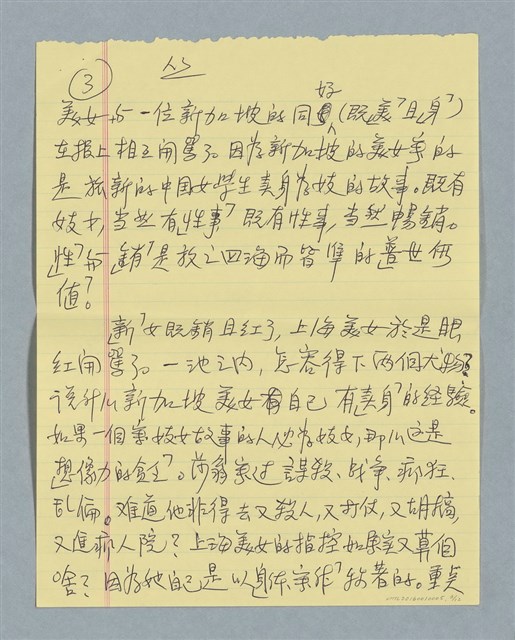 ③
美女与一位新加坡的同好（既美「且身」）
在报上相互開罵了。因为新加坡的美女争的
是旅新的中国女學生卖身为妓的故事。既有
妓女，当然有「性事」既有性事，当然暢銷。
「性」与「銷」是放之四海而皆準的普世价
值？
新「女既銷且红了，上海美女於是眼
红開罵了。一池之内，怎容得下两個大
说什么新加坡美女有自己有「卖身」的经驗。
如果一個寫妓女故事的人必为妓女，那么这是
想像力的贫乏。莎翁寫过謀殺、战争、瘋狂、
乱倫。难道他非得去又殺人，又打仗，又胡搞，
又進瘋人院？上海美女的指控如果又算個
啥？因为她自己是以「身体寫作」著的。重点